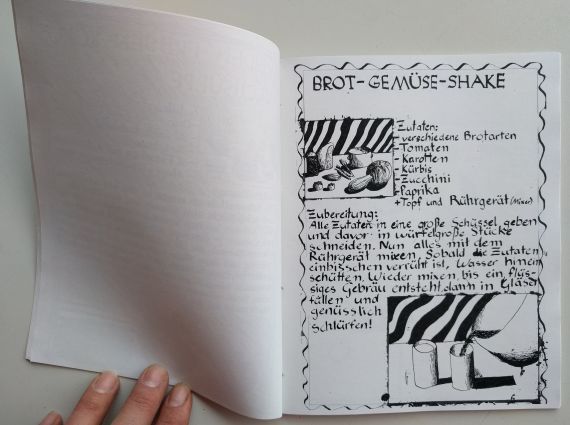 BROT-GEMÜSE-SHAKE
Zutaten:
- verschiedene Brotarten
- Tomaten
- Karotten
- Kürbis
- Zucchini
- Paprika
+ Topf und Rührgerät (Mixer)
Zubereitung:
Alle Zutaten in eine große Schüssel geben
und davor in würfelgroße Stücke
schneiden. Nun alles mit dem
Rührgerät mixen. Sobald die Zutaten
einbisschen verrührt ist, Wasser hinein
schütten. Wieder mixen, bis ein flüs-
siges Gebräu entsteht, dann in Gläser
füllen und
genüsslich
schlürfen!